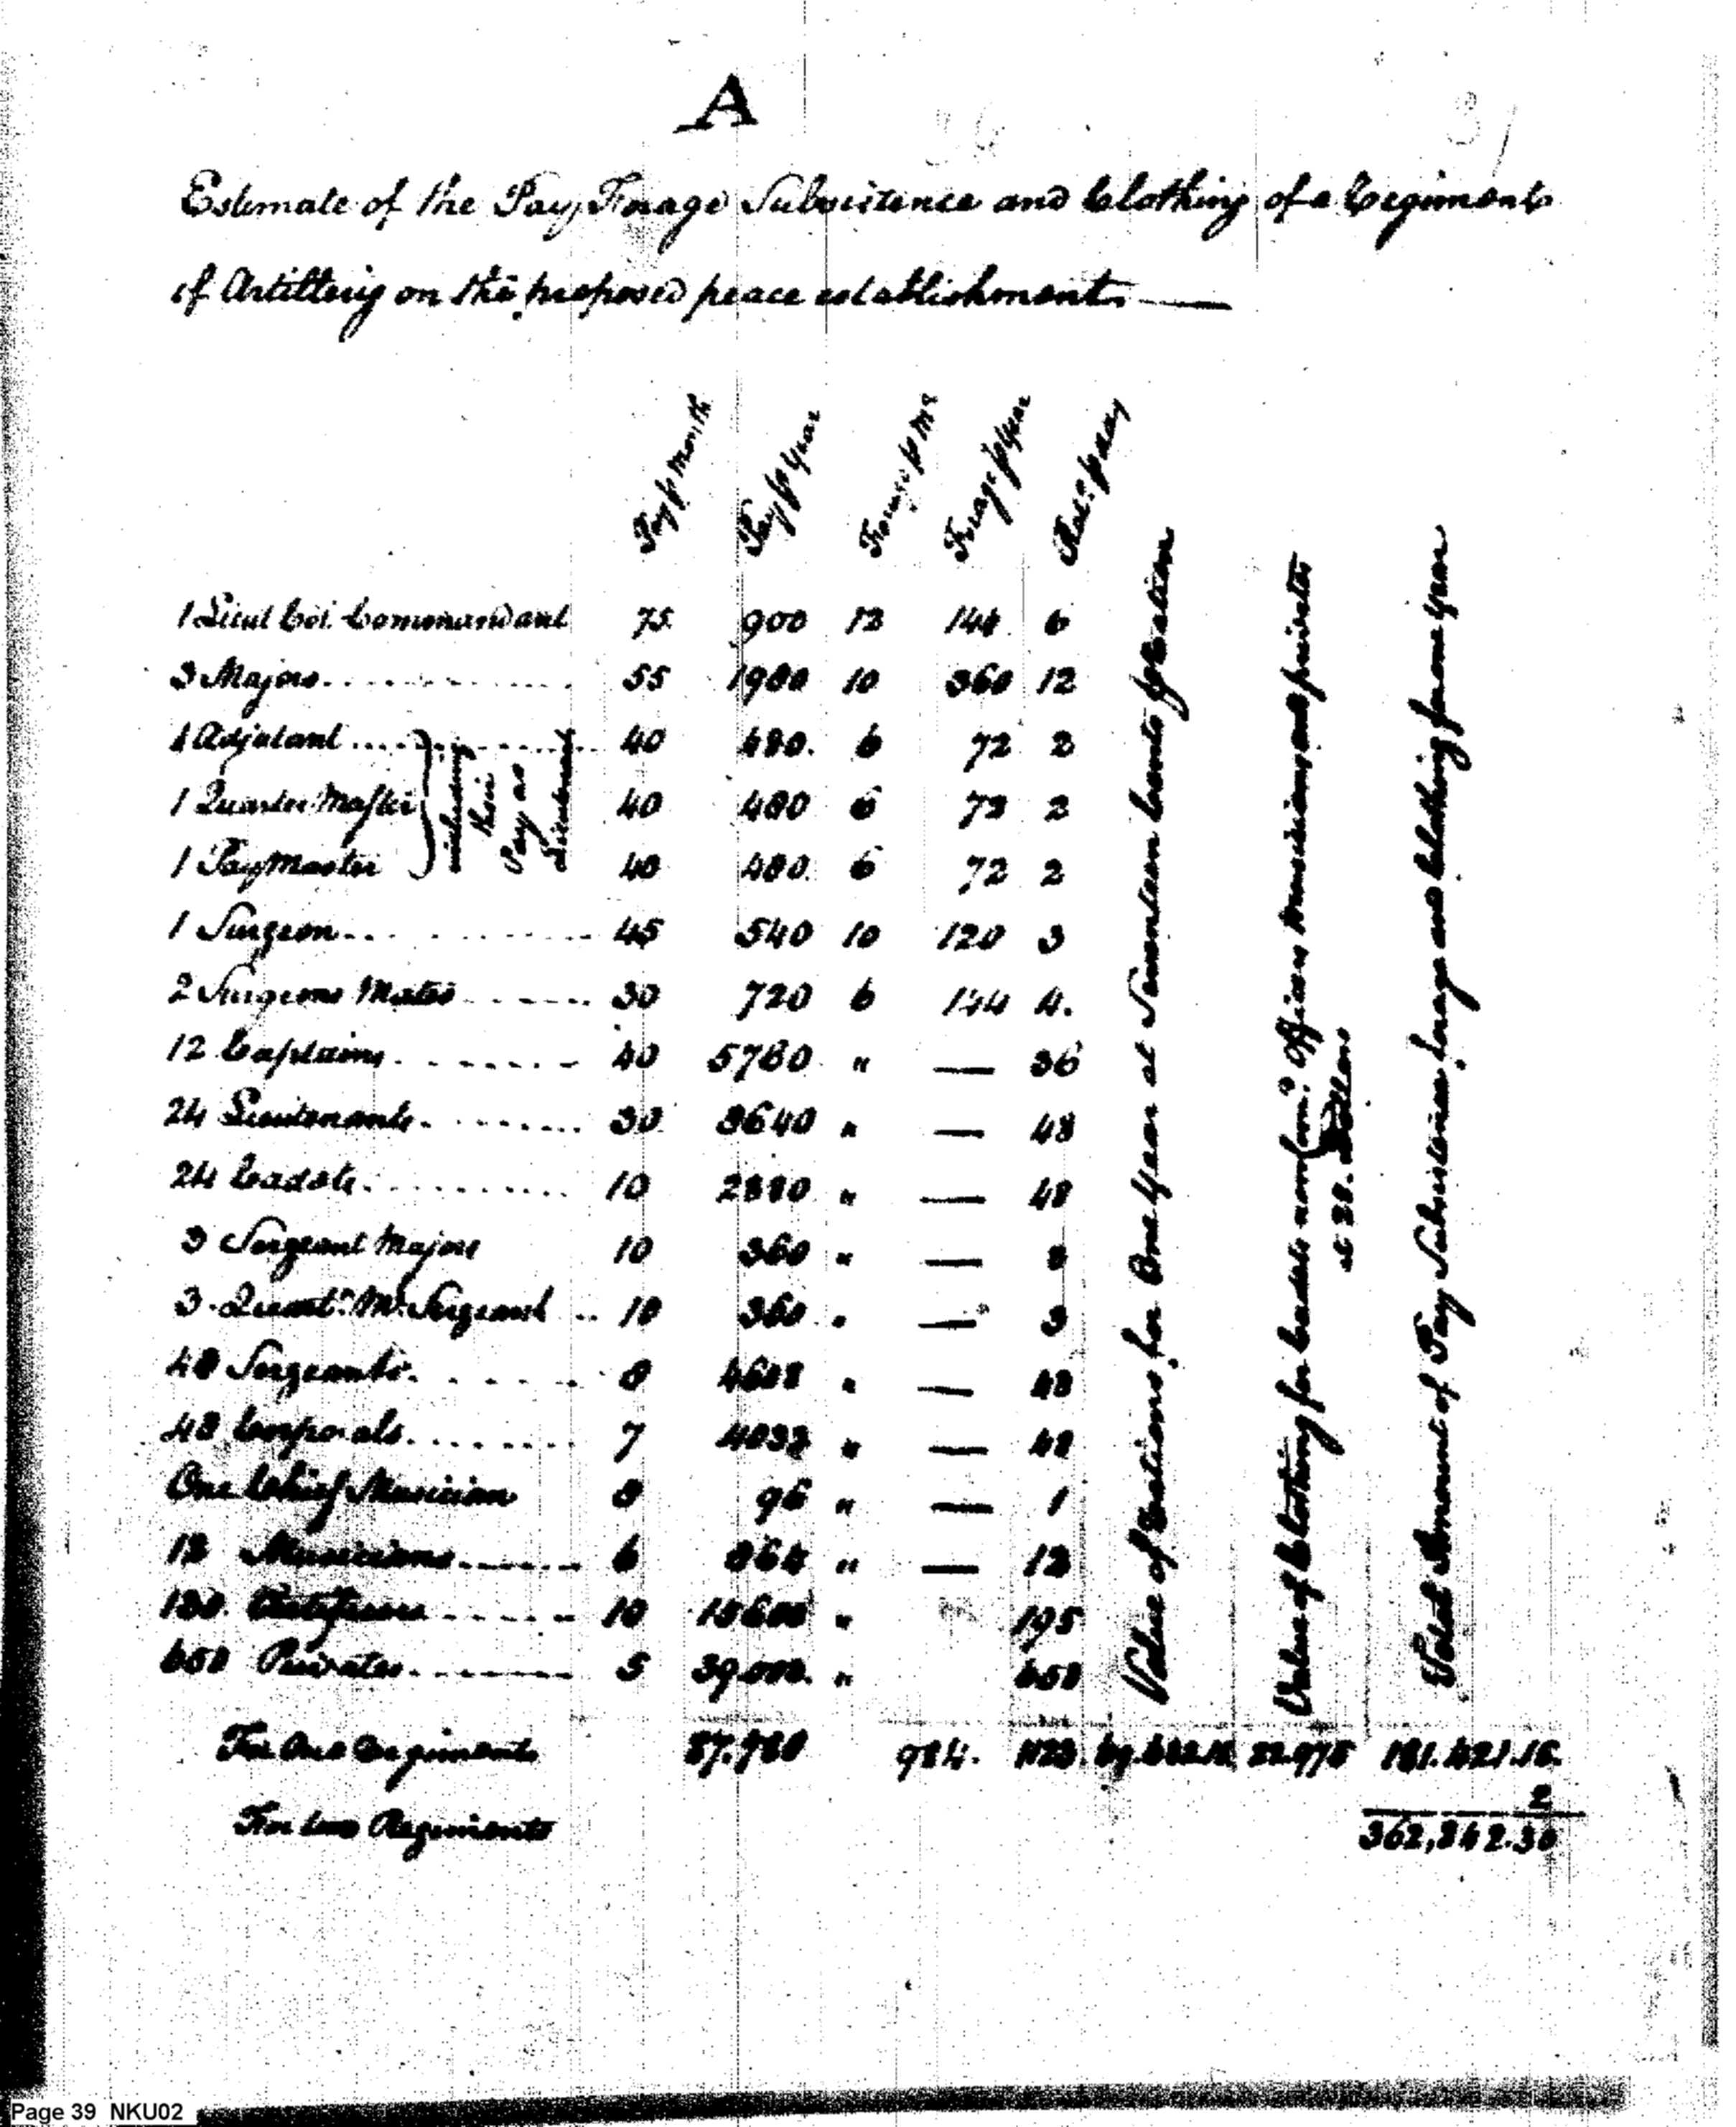 A
31
Estimate of the Pay, Forage Subsistence and Clothing of a Regiment
of Artillery on the proposed peace establishment
Pay p Month Pay p Year Forage p Mo Forage p Year Rats. p day
Value of Rations for One Year at Seventeen Cents p Ration
Value of Clothing for Cadets non Comd. Officers musicians and privates
at 25. Dollars
Total Amount of Pay Subsistence forage and Clothing for one Year
1 Lieut Col. Commandant 75 900 12 144 6
3 Majors 55 1980 10 360 12
1 Adjutant 40 480. 6 72 2
1 Quarter Master 40 480 6 72 2
1 Pay Master 40 480. 6 72 2
including their Pay as Lieutenants
1 Surgeon 45 540 10 120 3
2 Surgeons Mates 30 720 6 144 4.
12 Captains 40 5760 " — 36
24 Lieutenants 30 8640 " — 48
24 Cadets 10 2880 " — 48
3 Sergeant Majors 10 360 " — 3
3 Quartr. Mr. Sergeant 10 360 " — 3
48 Sergeants 8 4608 " — 48
48 Corporals 7 4032 " — 48
One Chief Musician 8 96 " — 1
12 Musicians 6 864 " — 12
130 Artificers 10 15600 " 195
650 Privates 5 39,000. " 650
For One Regiment 87.780 984. 1123. 22.975
2
For two Regiments 362,842.30
Page 39 NKU02